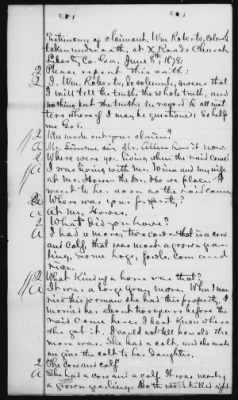 Testimony of claimant, Wm Roberts, Colored
taken under oath, at X Roads Church,
Liberty Co. Geo, June 8th 1873.
Please repeat this oath:
I, Wm. Roberts, do solemnly, swear that
I will tell the truth, the whole truth, and
nothing but the truth, in regard to all mat
ters where of I may be questioned: So help
me God.
Q Who made out your claim?
A Mr.
Q Where were you living when the raid came?
A I was living with Mr. Winn and my wife
at Mr. Howes.
went to her soon as the raid came.
Q Where was your property?
A At Mr. Howes.
Q What did you have?
A I had a mare, two cows, that is a cow
and calf, that was most a grown year
ling, some hogs, fowls, corn and
rice.
Q What kind of a horse was that?
A It was a large gray mare. When I mar
ried this woman she had this property. I
married her about two years before the
raid came here. I dont know where
she got it. I could not tell how old the
mare was. She had a colt, and she made
me give the colt to her daughter.
Q The cow and calf
A She had a cow and a calf. It was nearly
a grown yearling. Both were killed right